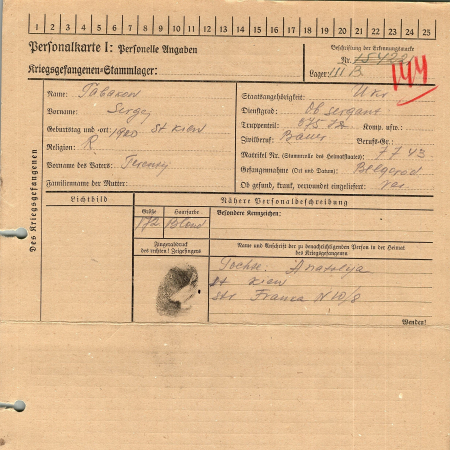 1 2 3 4 5 6 7 8 9 10 11 12 13 14 15 16 17 18 19 20 21 22 23 24 25
Personalkarte I: Personelle Angaben
Kriegsgefangenen-Stammlager:
Beschriftung der Erkennungsmarke
Nr. 15422
Lager: III B
144
Des Kriegsgefangenen
Name: Tabaken
Vorname: Sergej
Geburtstag und -ort: 1920 St Kiew
Religion: R
Vorname des Vaters:
Familienname der Mutter:
Staatsangehörigkeit: Ukr
Dienstgrad: Ob sergant
Truppenteil: 375 Komp. usw.:
Zivilberuf: Bauer Berufs-Gr.:
Matrikel Nr. (Stammrolle des Heimatstaates) 7 7 43
Gefangennahme (Ort und Datum): Belgorad
Ob gesund, krank, verwundet eingeliefert:
Lichtbild
Nähere Personalbeschreibung
Größe Haarfarbe Besondere Kennzeichen:
172 Blond
Fingerabdruck
des rechten! Zeigefingers
Name und Anschrift der zu benachrichtigenden Person in der Heimat
des Kriegsgefangenen
Anatolya
St Kiew
Str Franca N 10/8
Wenden!